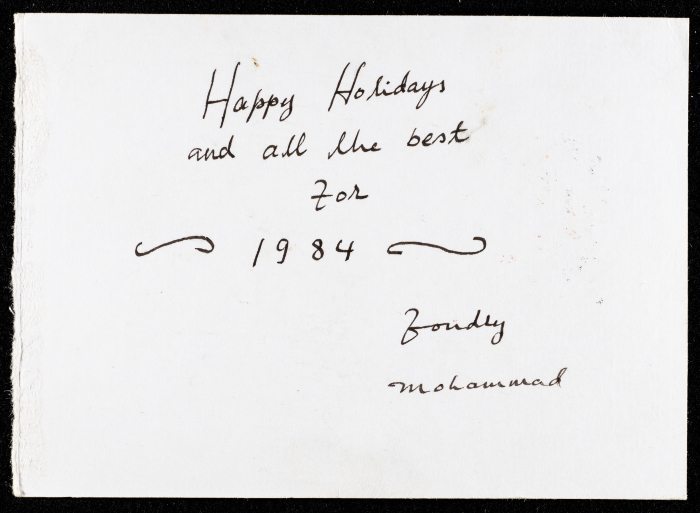 Happy Holidays
and all the best
For
1984
Fondly
Mohammad